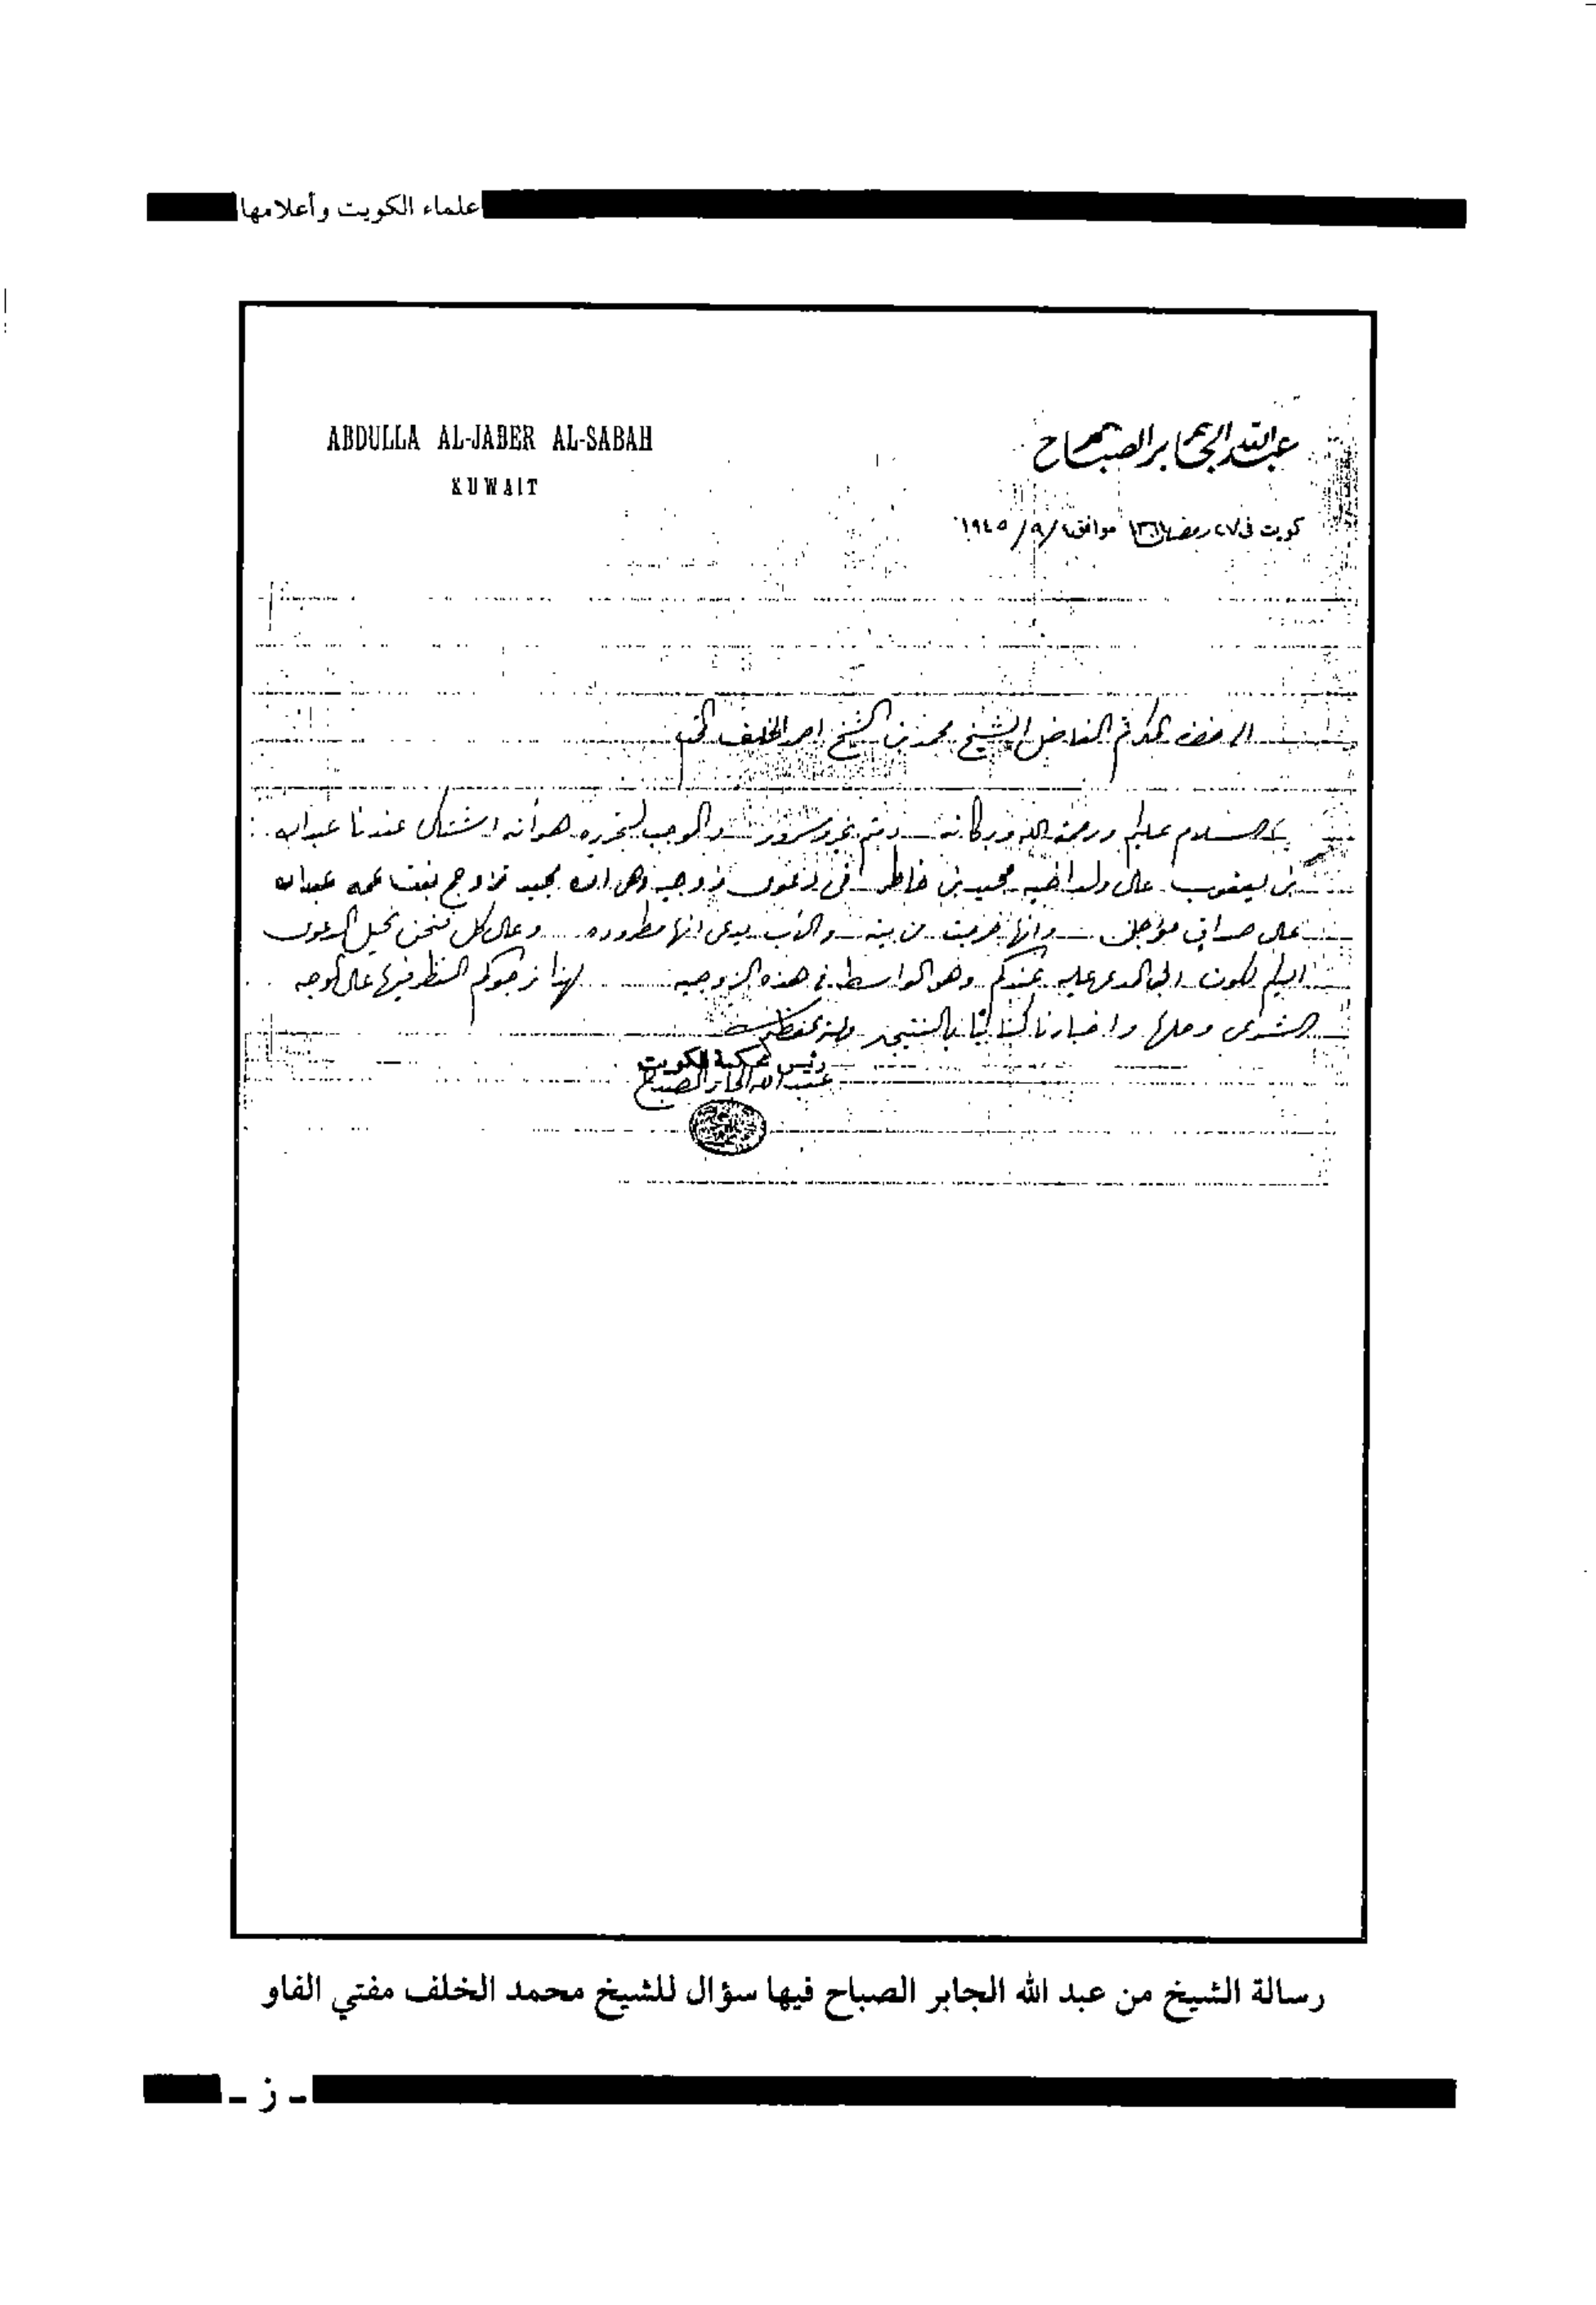 علماء الكويت وأعلامها
ABDULLA AL-JABER AL-SABAH
KUWAIT
عبد الله الجابر الصباح
كويت في ٢٧ رمضان موافق ٩/ ١٩٤٥
المكرم الفاضل الشيخ محمد بن الشيخ احمد الخلف
السلام عليكم ورحمة الله وبركاته والموجب لتحريره هو أنه اشتكى عندنا عبدالله
بن يعقوب على ولد اخيه محيد بن خاطر في دعوى زوجيه وهي ان محيد تزوج بنت عمه عبدالله
على صداق مؤجل وانها خرجت من بيته والأب يدعي انها مطروده وعلى كل فنحن نحيل الدعوى
اليكم لكون المدعى عليه عندكم وهو الواسطه في هذه الزوجيه لهذا نرجوكم النظر فيها على الوجه
الشرعي وحلها واخبارنا كتابيا بالنتيجه والله يحفظكم
رئيس محكمة الكويت
عبدالله الجابر الصباح
رسالة الشيخ من عبد الله الجابر الصباح فيها سؤال للشيخ محمد الخلف مفتي الفاو
- ز -